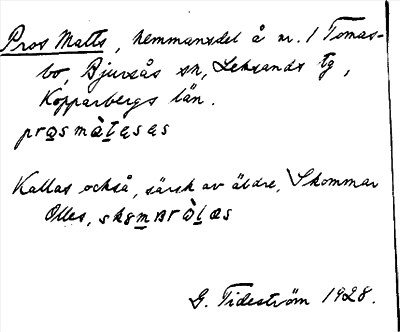 Pros Matts, hemmansdel å nr. 1 Tomas-
bo, Bjursås sn, Leksands tg,
Kopparbergs län.
Kallas också, särsk av äldre, Skommar
Olles,
G. Tideström 1928.